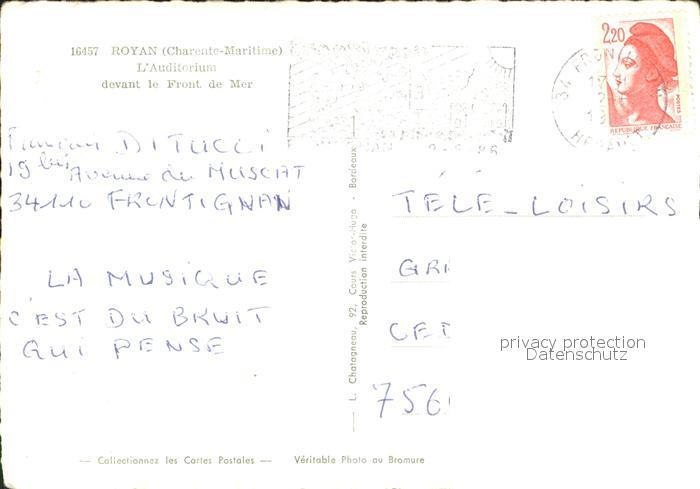 16457 ROYAN (Charente-Maritime)
L'Auditorium
devant le Front de Mer
DITUCCI
19 bis Avenue du MUSCAT
34110 FRONTIGNAN
LA MUSIQUE
C'EST DU BRUIT
QUI PENSE
L. Chatagneau, 92, Cours Victor-Hugo - Bordeaux
Reproduction interdite
2,20
POSTES
REPUBLIQUE FRANÇAISE
34 FRON
HERAULT
TELE-LOISIRS
GR
CE
756
privacy protection
Datenschutz
— Collectionnez les Cartes Postales — Véritable Photo au Bromure